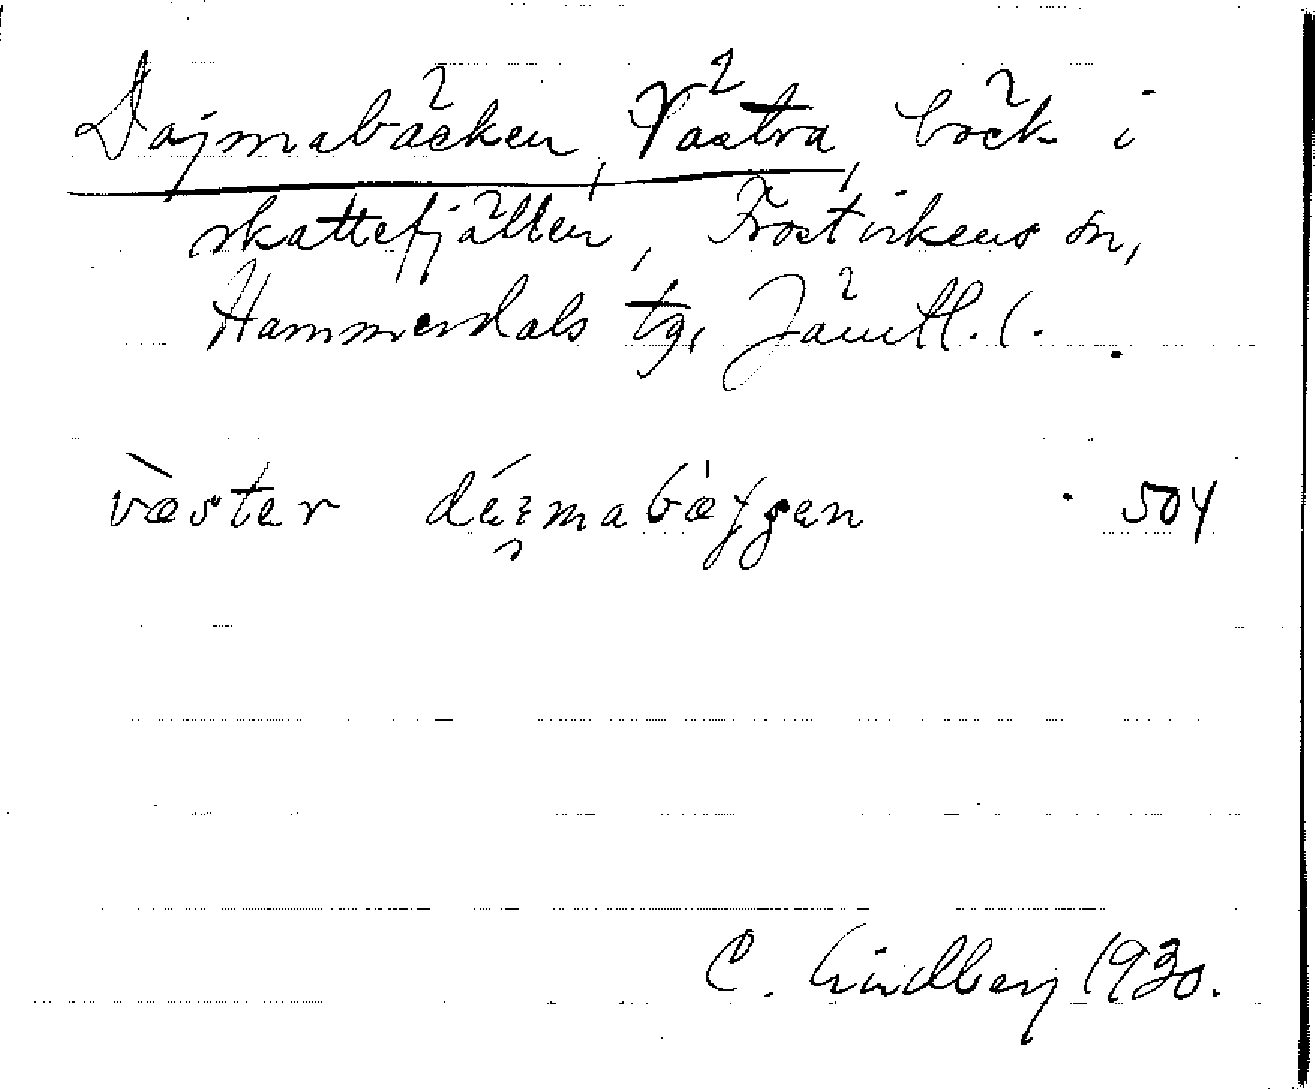 Dajmabäcken, Västra, bäck i
skattefjällen, Frostvikens sn,
Hammerdals tg, Jämtl. l.
väster 504
C. Lindberg 1930.